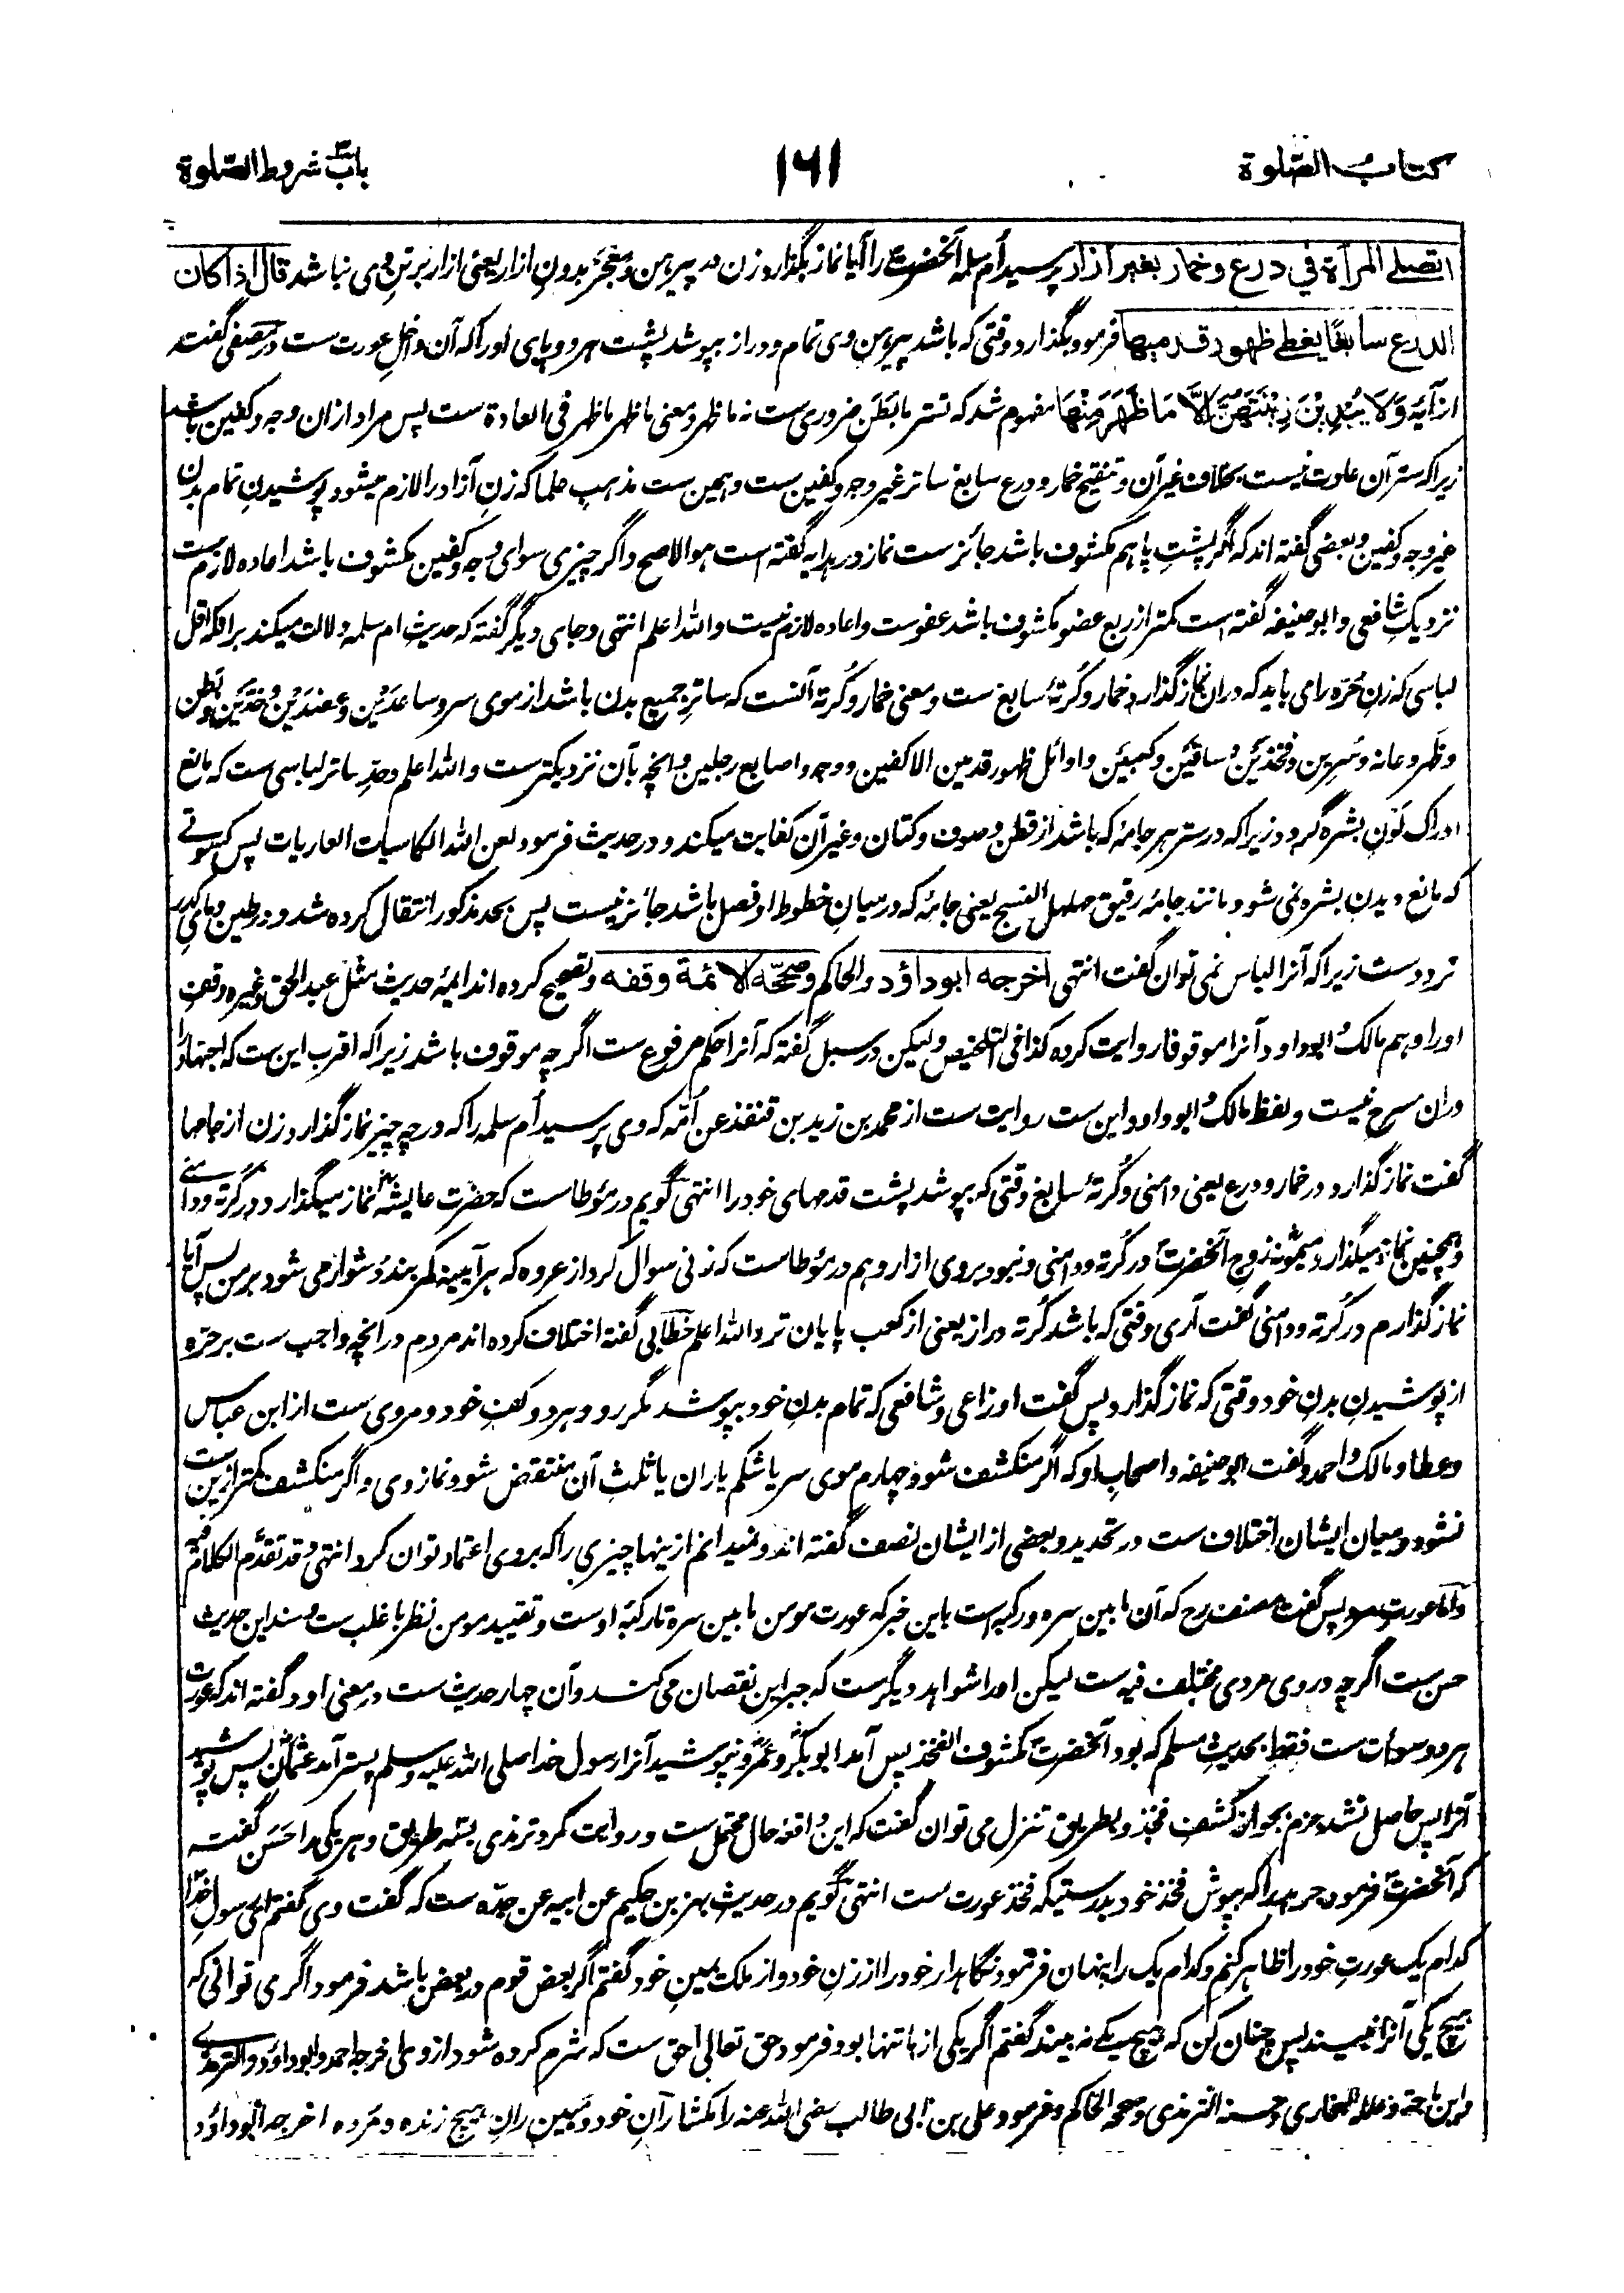 کتاب الصّلوة
۱۶۱
باب شروط الصّلوة
اتصلی المرأة في درع وخمار بغیر ازار پرسید اُم سلمه آنحضرت را آیا نماز بگذارد زن در پیرهن و معجر بدونِ ازار یعنی ازار برتنِ وی نباشد قال اذا کان
الدرع سابغًا یغطی ظهور قدمیها فرمود بگذارد وقتی که باشد پیرهن وی تمام و دراز بپوشد پشت هر دو پای او را که آن داخلِ عورت ست در مصفی گفته
از آیه وَلَا یُبْدِیْنَ زِیْنَتَهُنَّ اِلَّا مَا ظَهَرَ مِنْهَا مفهوم شد که تستر ما بَطَن ضروری ست نه ما ظهر و معنی ما ظهر ما ظهر في العادة ست پس مراد ازان وجه و کفین باشد
زیرا که ستر آن عادت نیست بخلاف غیر آن و تنقیح خمار و درع سابغ ساتر غیر وجه و کفین ست و همین ست مذهب علما که زنِ آزاد را لازم میشود پوشیدنِ تمام بدن
غیر وجه و کفین و بعضی گفته اند که اگر پشتِ پا هم مکشوف باشد جائز ست نماز در هدایه گفته است هو الاصح و اگر چیزی سوای وجه و کفین مکشوف باشد اعاده لازم ست
نزدیک شافعی و ابوحنیفه گفته است کمتر از ربع عضو مکشوف باشد عفوست و اعاده لازم نیست والله اعلم انتهی و جای دیگر گفته که حدیث ام سلمه دلالت میکند بر انکه اقل
لباسی که زن حُرّه را می باید که دران نماز گذارد خمار و کُرتۀ سابغ ست و معنی خمار و کُرته آنست که ساترِ جمیع بدن باشد از موی سر و ساعدَین و عضدَین و خدَّین و بطن
و ظَهر و عانه و سُرین و فخذَین و ساقَین و کعبَین و اوائل ظهور قدمین الا کفین و وجه و اصابع رجلین و آنچه بآن نزدیکترست والله اعلم و حدِ ساتر لباسی ست که مانع
ادراک لَونِ بشره گردد زیرا که در ستر هر جامه که باشد از قطن و صوف و کتان و غیر آن کفایت میکند و در حدیث فرمود لعن الله الکاسیات العاریات پس کسوتی
که مانع دیدن بشره نمی شود مانند جامه رقیق مهلهل النسج یعنی جامه که درمیانِ خطوط او فصل باشد جائز نیست پس بحد مذکور انتقال کرده شد و در طین و مای کدر
تردد ست زیرا که آنرا لباس نمی توان گفت انتهی اخرجه ابوداؤد والحاکم وصحّه الائمة وقفه و تصحیح کرده اند ایمۀ حدیث مثل عبدالحق و غیره وقف
او را و هم مالک و ابوداود آنرا موقوفا روایت کرده کذا في التلخیص و لیکن در سبل گفته که آنرا حکم مرفوع ست اگرچه موقوف باشد زیرا که اقرب این ست که اجتهاد را
دران مسرح نیست و لفظ مالک و ابوداود این ست روایت ست از محمد بن زید بن قنفذ عن اُمّه که وی پرسید اُم سلمه را که در چه چیز نماز گذارد زن از جامها
گفت نماز گذارد در خمار و درع یعنی دامنی و کُرتۀ سابغ وقتی که بپوشد پشت قدمهای خود را انتهی گویم در مؤطاست که حضرت عایشه نماز میگذارد در کُرته و دامنی
و همچنین نماز میگذارد میمونه زوجِ آنحضرت در کُرته و دامنی و نبود بر وی ازار و هم در مؤطاست که زنی سوال کرد از عروه که هر آیینه کمربند دُشوار می شود بر من پس آیا
نماز گذارم در کُرته و دامنی گفت آری وقتی که باشد کُرته دراز یعنی از کعب پایان تر والله اعلم خطابی گفته اختلاف کرده اند مردم درانچه واجب ست بر حرّه
از پوشیدنِ بدنِ خود وقتی که نماز گذارد پس گفت اوزاعی و شافعی که تمام بدنِ خود بپوشد مگر رو و هر دو کفِ خود و مروی ست از ابن عباس
و عطا و مالک و احمد و گفت ابوحنیفه و اصحابِ او که اگر منکشف شود چهارم موی سر یا شکم یا ران یا ثلثِ آن منتقض شود نماز وی و اگر منکشف کمتر ازین ست
نشود و میان ایشان اختلاف ست در تحدید و بعضی از ایشان نصف گفته اند و نمیدانم ازینها چیزی را که بروی اعتماد توان کرد انتهی و قد تقدّم الکلام فیه
و اما عورت مرد پس گفت مصنف رح که آن ما بین سره و رکبه است باین خبر که عورت مومن ما بین سره تا رکبۀ اوست و تقیید مومن نظر با غلب ست و سند این حدیث
حسن ست اگرچه در وی مردی مختلف فیه ست لیکن او را شواهد دیگرست که جبر این نقصان می کند و آن چهار حدیث ست در معنی او و گفته اند که عورت
هر دو سوأت ست فقط بحدیث مسلم که بود آنحضرت مکشوف الفخذ پس آمد ابوبکر و عمر و نپوشید آنرا رسول خدا صلی الله علیه وسلم پستر آمد عثمان پس پوشید
آنرا پس حاصل نشد جزم بجواز کشفِ فخذ و بطریق تنزل می توان گفت که این واقعۀ حال محتمل ست و روایت کرد ترمذی بسه طریق و هر یکی را حَسَن گفته
که آنحضرت فرمود جرهد را که بپوش فخذ خود بدرستیکه فخذ عورت ست انتهی گویم در حدیث بهز بن حکیم عن ابیه عن جدّه ست که گفت وی گفتم ای رسول خدا
کدام یک عورتِ خود را ظاهر کنم و کدام یک را پنهان فرمود نگاهدار خود را از زنِ خود و از ملک یمینِ خود گفتم اگر بعض قوم در بعض باشد فرمود اگر می توانی که
هیچ یکی آنرا نبیند پس چنان کن که هیچ یکے نه بیند گفتم اگر یکی از ما تنها بود فرمود حق تعالی احق ست که شرم کرده شود از وی اخرجه احمد و ابوداؤد والترمذے
وابن ماجة وعلقه البخاری وحسنه الترمذی وصححه الحاکم و فرمود علی بن ابی طالب رضی الله عنه را مکشا رانِ خود و مبین رانِ هیچ زنده و مُرده اخرجه ابوداؤد